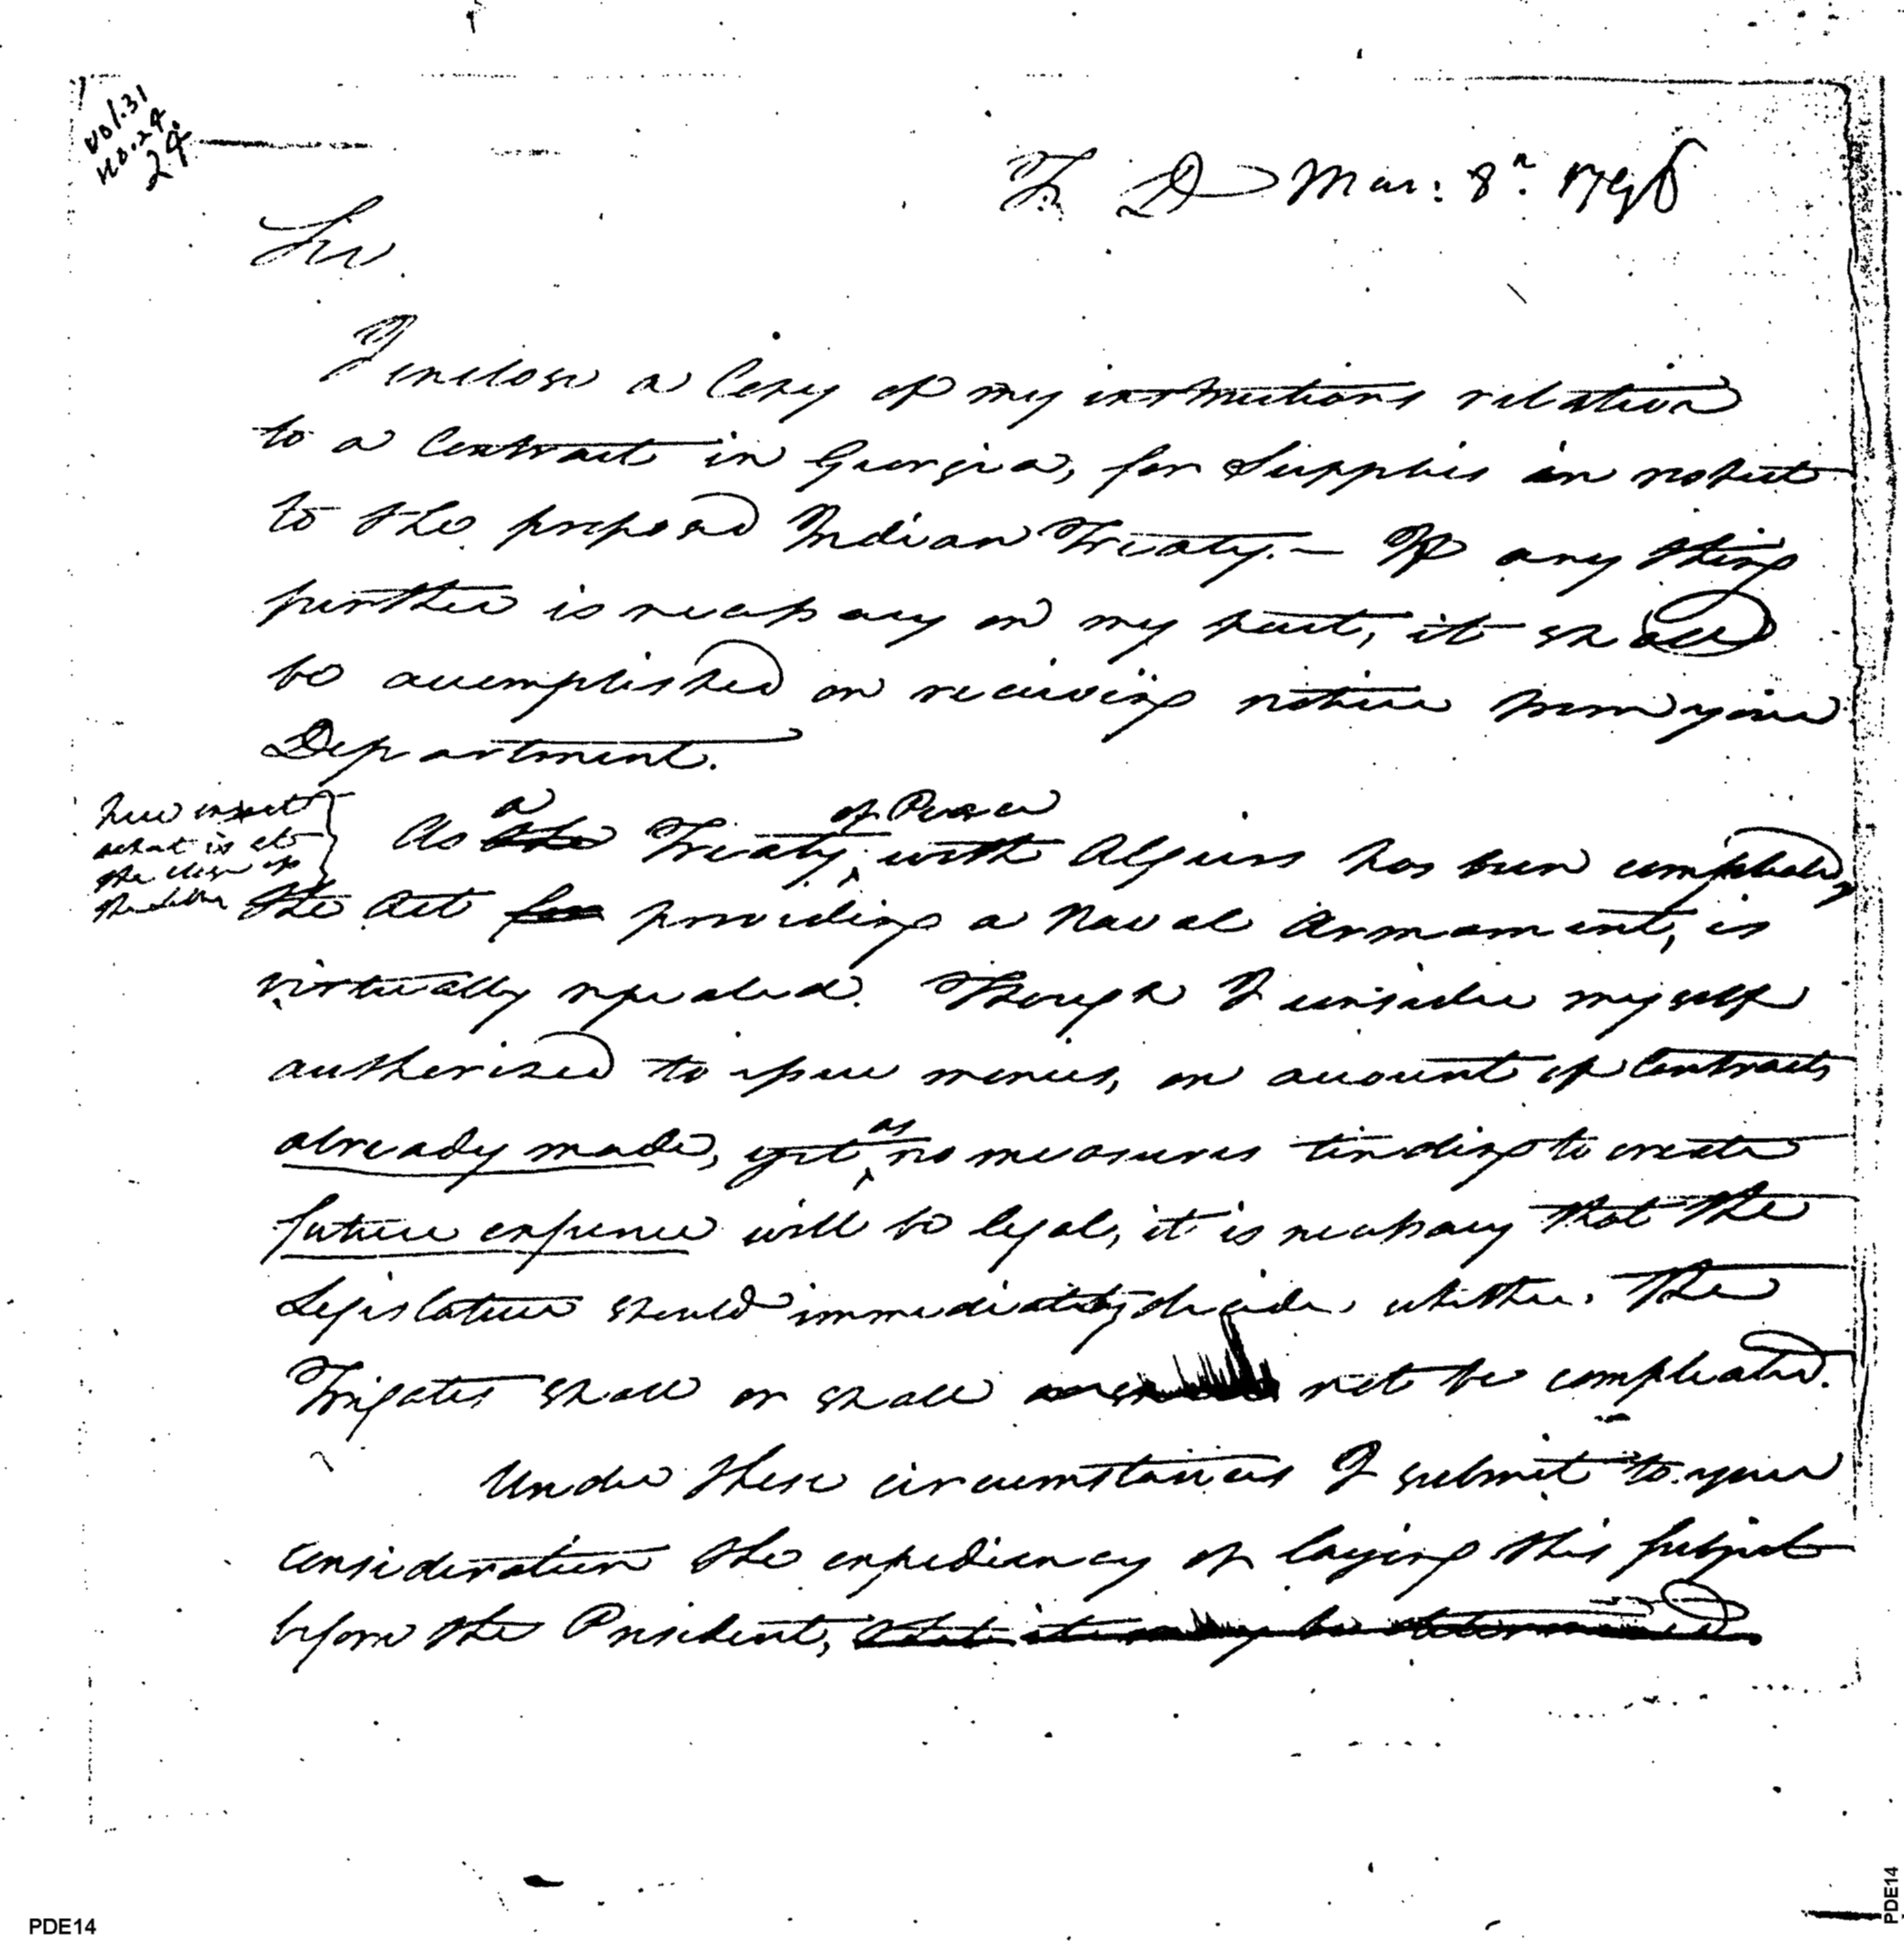 Vol. 31
No. 24.
24
T. D Mar: 8th. 1796
Sir.
I enclose a Copy of my instructions relative
to a Contract in Georgia, for Supplies in respect
to the proposed Indian Treaty.— If any thing
further is necessary on my part, it shall
be accomplished on receiving notice from your
Department.
here insert
what is at
the close of
the letter
a of Peace
As the Treaty with Algiers has been compleated,
the Act for providing a Naval Armament, is
virtually repealed. Though I consider myself
authorised to issue monies, on account of Contracts
as
already made, yet no measures tending to create
future expence will be legal, it is necessary that the
Legislature should immediately decide, whether the
Frigates shall or shall not be compleated.
Under these circumstances I submit to your
consideration the expediency of laying this subject
before the President, that it may be determined
PDE14
PDE14